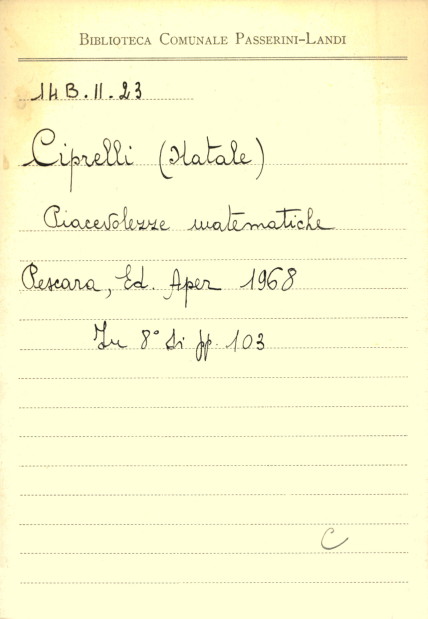 BIBLIOTECA COMUNALE PASSERINI-LANDI
14B.II.23
Ciprelli (Natale)
Piacevolezze matematiche
Pescara, Ed. Aper 1968
In 8° di pp. 103
C